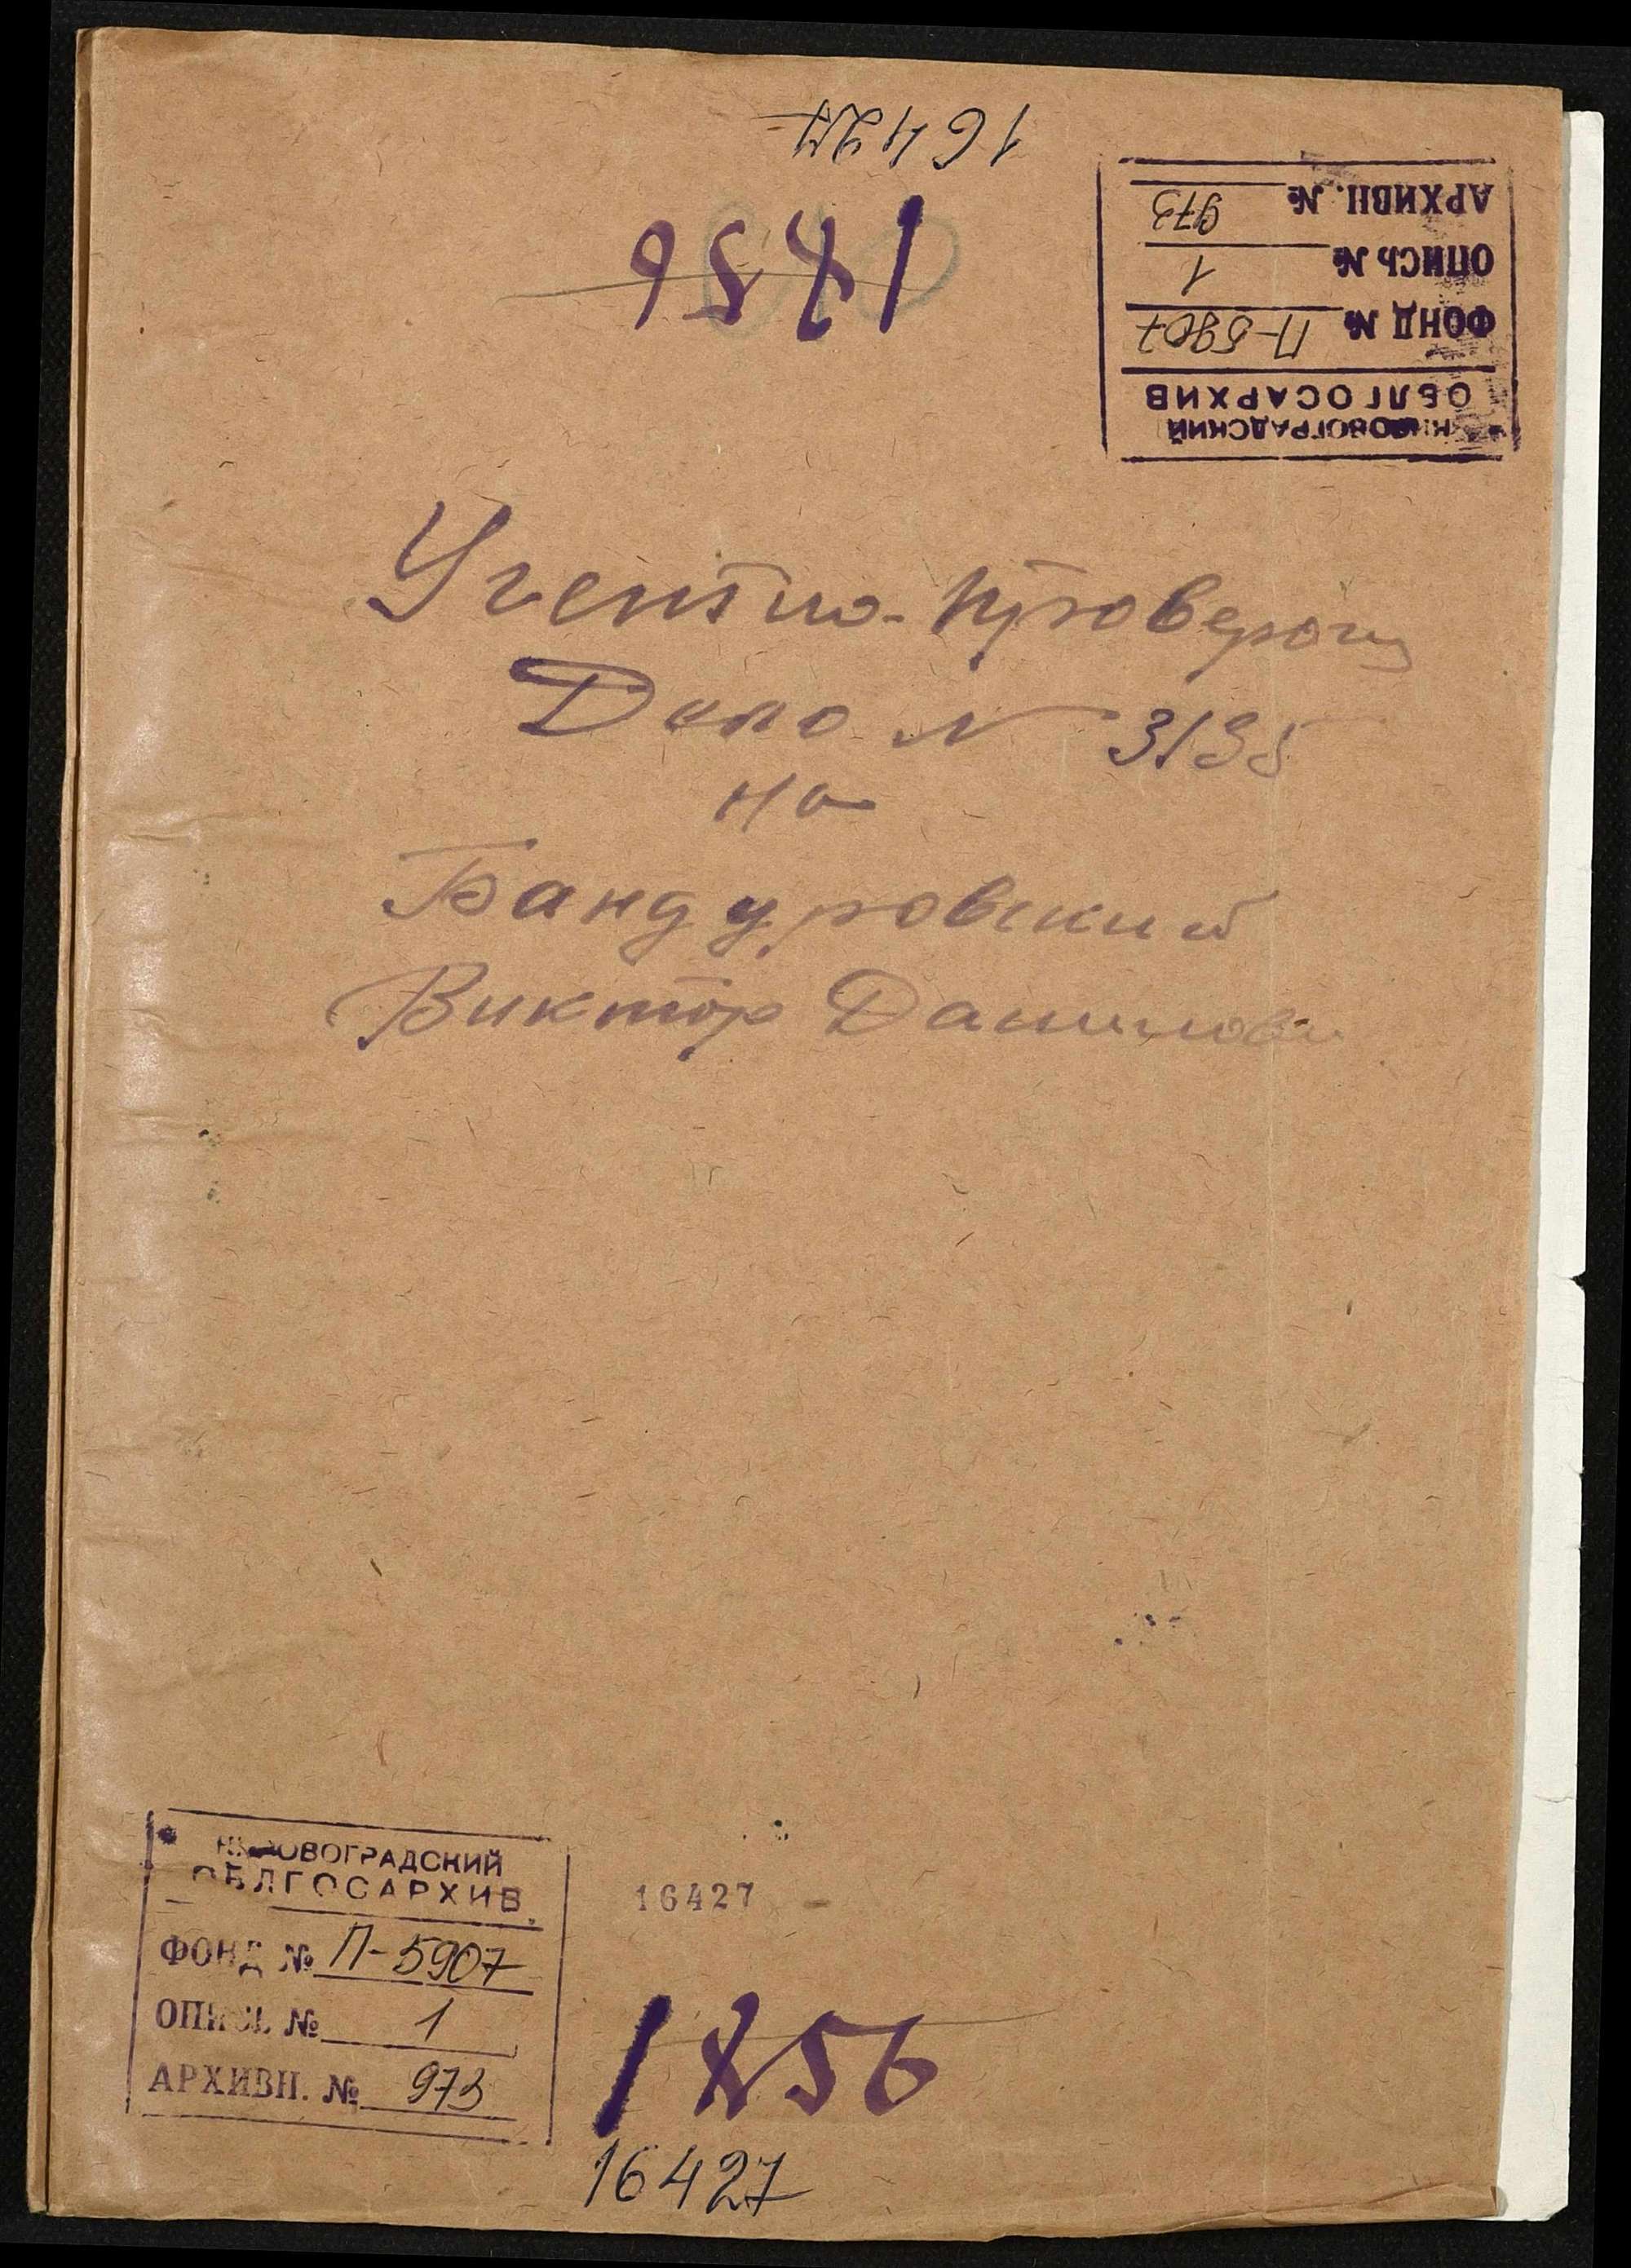 16427
1856
КИРОВОГРАДСКИЙ
ОБЛГОСАРХИВ
ФОНД № П-5907
ОПИСЬ № 1
АРХИВН. № 973
Учетно-Провероч
Дело N 3135
на
Бандуровский
Виктор Данилови
КИРОВОГРАДСКИЙ
ОБЛГОСАРХИВ
ФОНД № П-5907
ОПИСЬ № 1
АРХИВН. № 973
16427
1856
16427